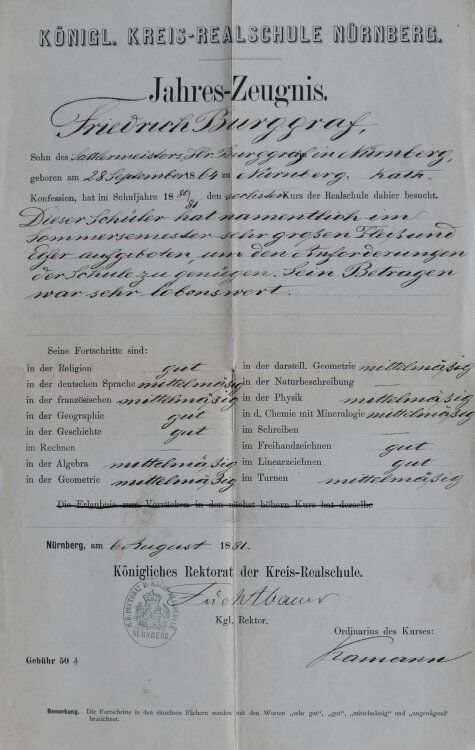 KÖNIGL. KREIS-REALSCHULE NÜRNBERG.
Jahres-Zeugnis.
Friedrich Burggraf,
Sohn des Sattlermeisters, Hr. Burggraf in Nürnberg,
geboren am 28 September 1864 zu Nürnberg, kath.
Konfession, hat im Schuljahre 1880/81 den sechsten Kurs der Realschule dahier besucht.
Dieser Schüler hat namentlich im
Sommersemester sehr großen Fleiß und
Eifer aufgeboten, um den Anforderungen
der Schule zu genügen. Sein Betragen
war sehr lobenswert.
Seine Fortschritte sind:
in der Religion gut
in der deutschen Sprache mittelmäßig
in der französischen mittelmäßig
in der Geographie gut
in der Geschichte gut
im Rechnen
in der Algebra mittelmäßig
in der Geometrie mittelmäßig
in der darstell. Geometrie mittelmäßig
in der Naturbeschreibung —
in der Physik mittelmäßig
in d. Chemie mit Mineralogie mittelmäßig
im Schreiben —
im Freihandzeichnen gut
im Linearzeichnen gut
im Turnen mittelmäßig
Die Erlaubnis zum Vorrücken in den nächst höhern Kurs hat derselbe
Nürnberg, am 6 August 1881.
Königliches Rektorat der Kreis-Realschule.
Füchtbauer
Kgl. Rektor.
NÜRNBERG.
Ordinarius des Kurses:
Kamann
Gebühr 50 ₰
Bemerkung. Die Fortschritte in den einzelnen Fächern werden mit den Worten „sehr gut", „gut", „mittelmässig" und „ungenügend"
bezeichnet.